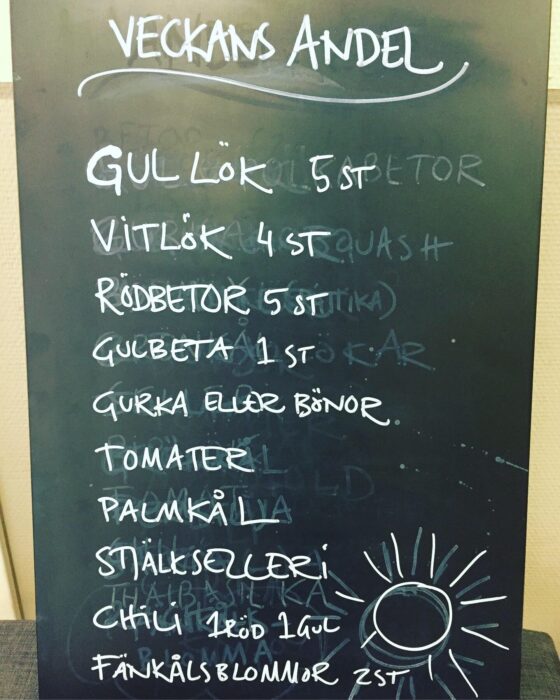 VECKANS ANDEL
GUL LÖK 5 ST
VITLÖK 4 ST
RÖDBETOR 5 ST
GULBETA 1 ST
GURKA ELLER BÖNOR
TOMATER
PALMKÅL
STJÄLKSELLERI
CHILI 1 RÖD 1 GUL
FÄNKÅLSBLOMMOR 2 ST